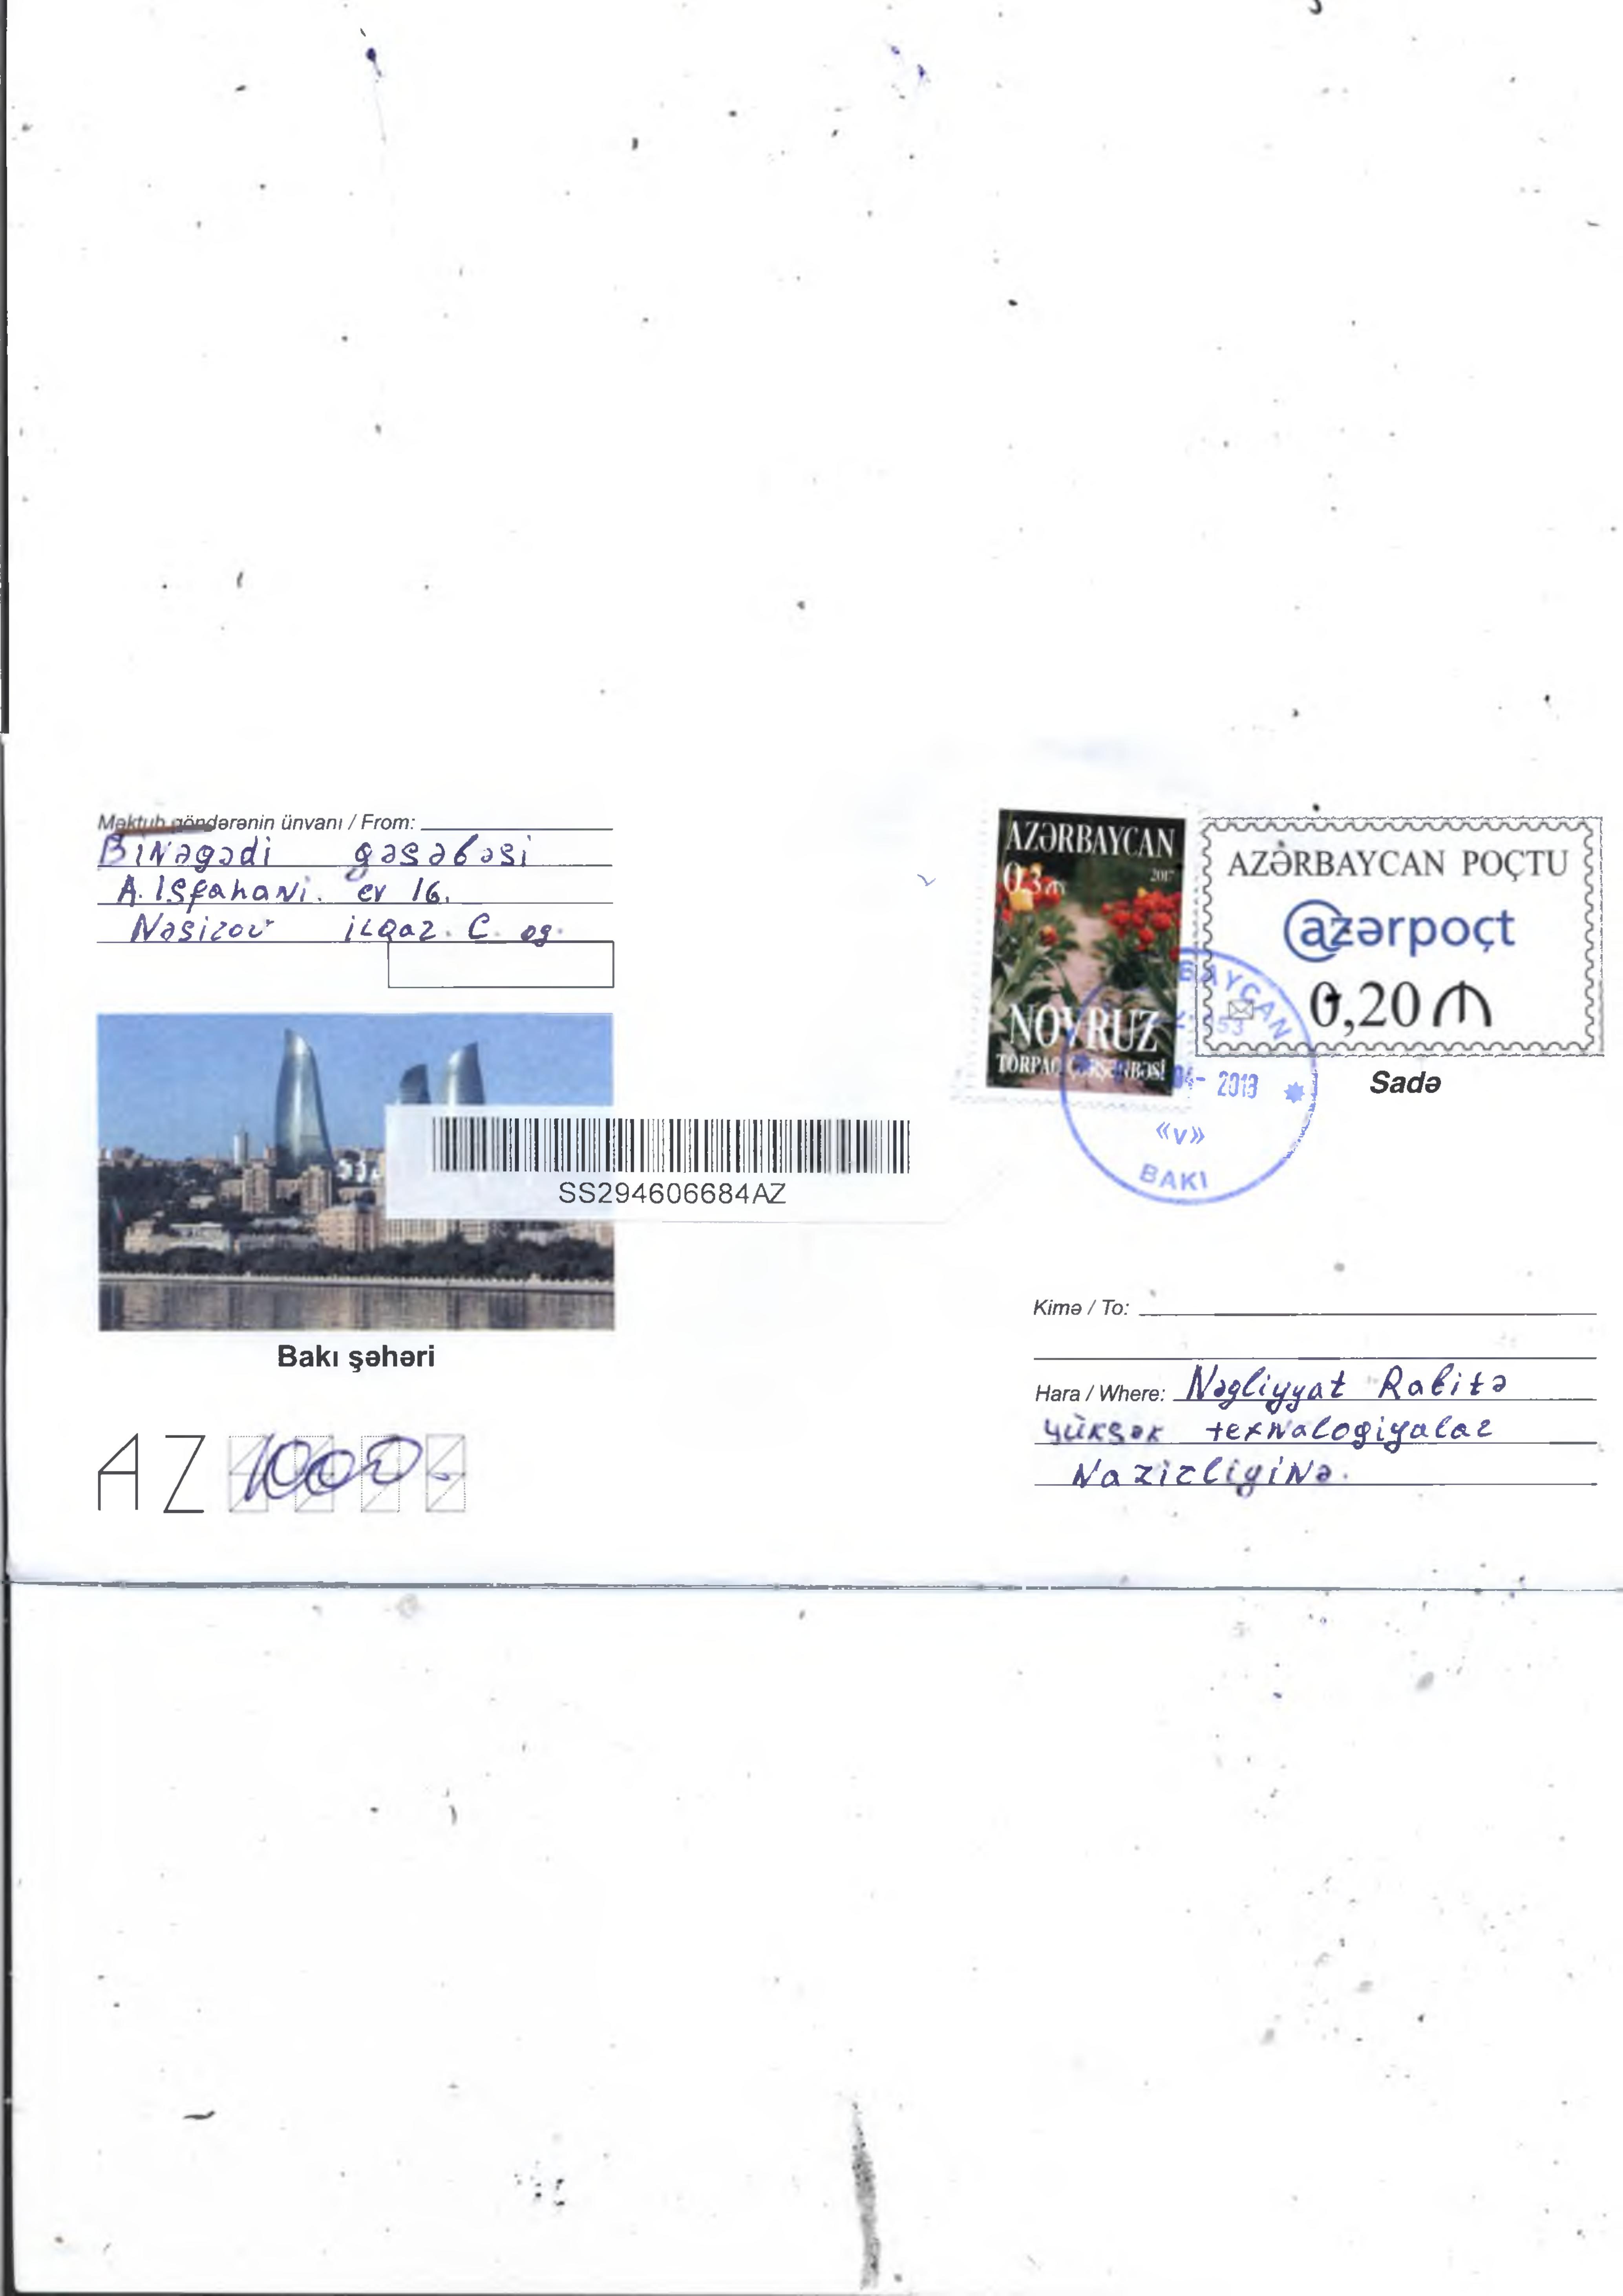 Məktub göndərənin ünvanı / From:
Binəgədi gəsəbəsi
A. Isfahani. ev 16.
Nəsirov ilqar. C. og.
AZƏRBAYCAN
0,3 m 2017
NOVRUZ
TORPAQ ÇƏRŞƏNBƏSİ
AZƏRBAYCAN POÇTU
@azərpoçt
0,20 ₼
Sadə
BAYCAN
2018
«V»
BAKI
SS294606684AZ
Bakı şəhəri
AZ 1000
Kimə / To:
Hara / Where: Nəgliyyat Rabitə
yüksək texnalogiyalar
Nazirliyinə.